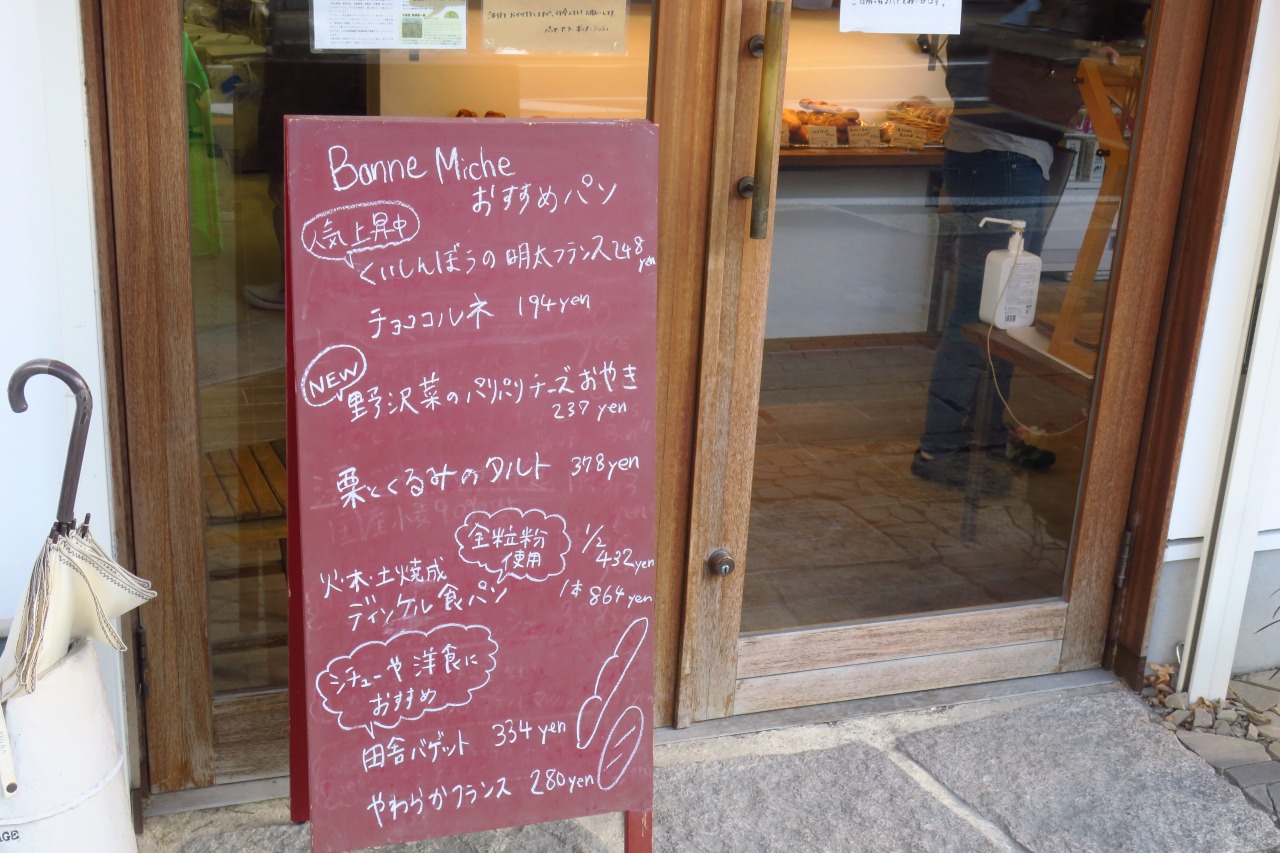 Bonne Miche
おすすめパン
人気上昇中
くいしんぼうの明太フランス248yen
チョココルネ 194yen
NEW
野沢菜のパリパリチーズおやき
237yen
栗とくるみのタルト 378yen
全粒粉
使用
1/2
432yen
火・木・土焼成
ディンケル食パン
1本864yen
シチューや洋食に
おすすめ
田舎バゲット 334yen
やわらかフランス 280yen
AGE